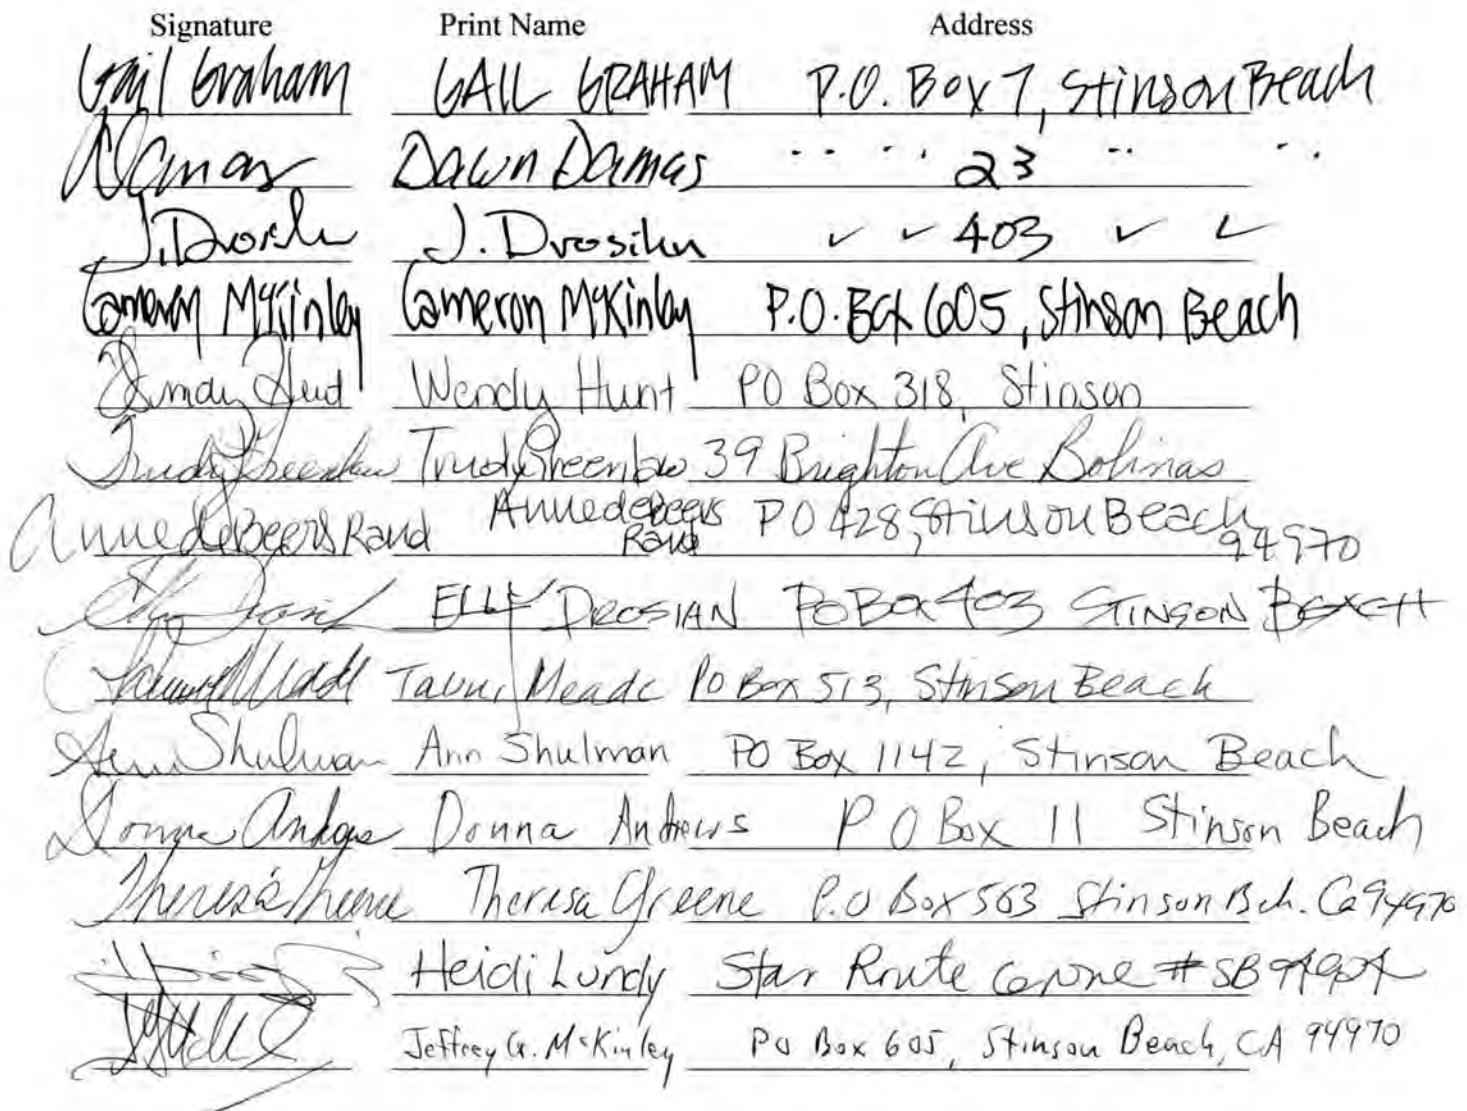 Signature Print Name Address
Gail Graham GAIL GRAHAM P.O. Box 7, Stinson Beach
Damas Dawn Damas " " 23 " "
J. Drosihn ✓ ✓ 403 ✓ ✓
Cameron McKinley Cameron McKinley P.O. Box 605, Stinson Beach
Wendy Hunt Wendy Hunt PO Box 318, Stinson
Trudy Greenlaw Trudy Greenlaw 39 Brighton Ave Bolinas
Anne deBeers Rand Anne deBeers Rand PO 428, Stinson Beach 94970
DROSIAN PO Box 403 STINSON BEACH
Meade PO Box 513, Stinson Beach
Ann Shulman Ann Shulman PO Box 1142, Stinson Beach
Donna Andrews Donna Andrews P O Box 11 Stinson Beach
Theresa Greene Theresa Greene P.O Box 563 Stinson Bch. Ca 94970
Heidi Lundy Star Route # SB
Jeffrey G. McKinley PO Box 605, Stinson Beach, CA 94970